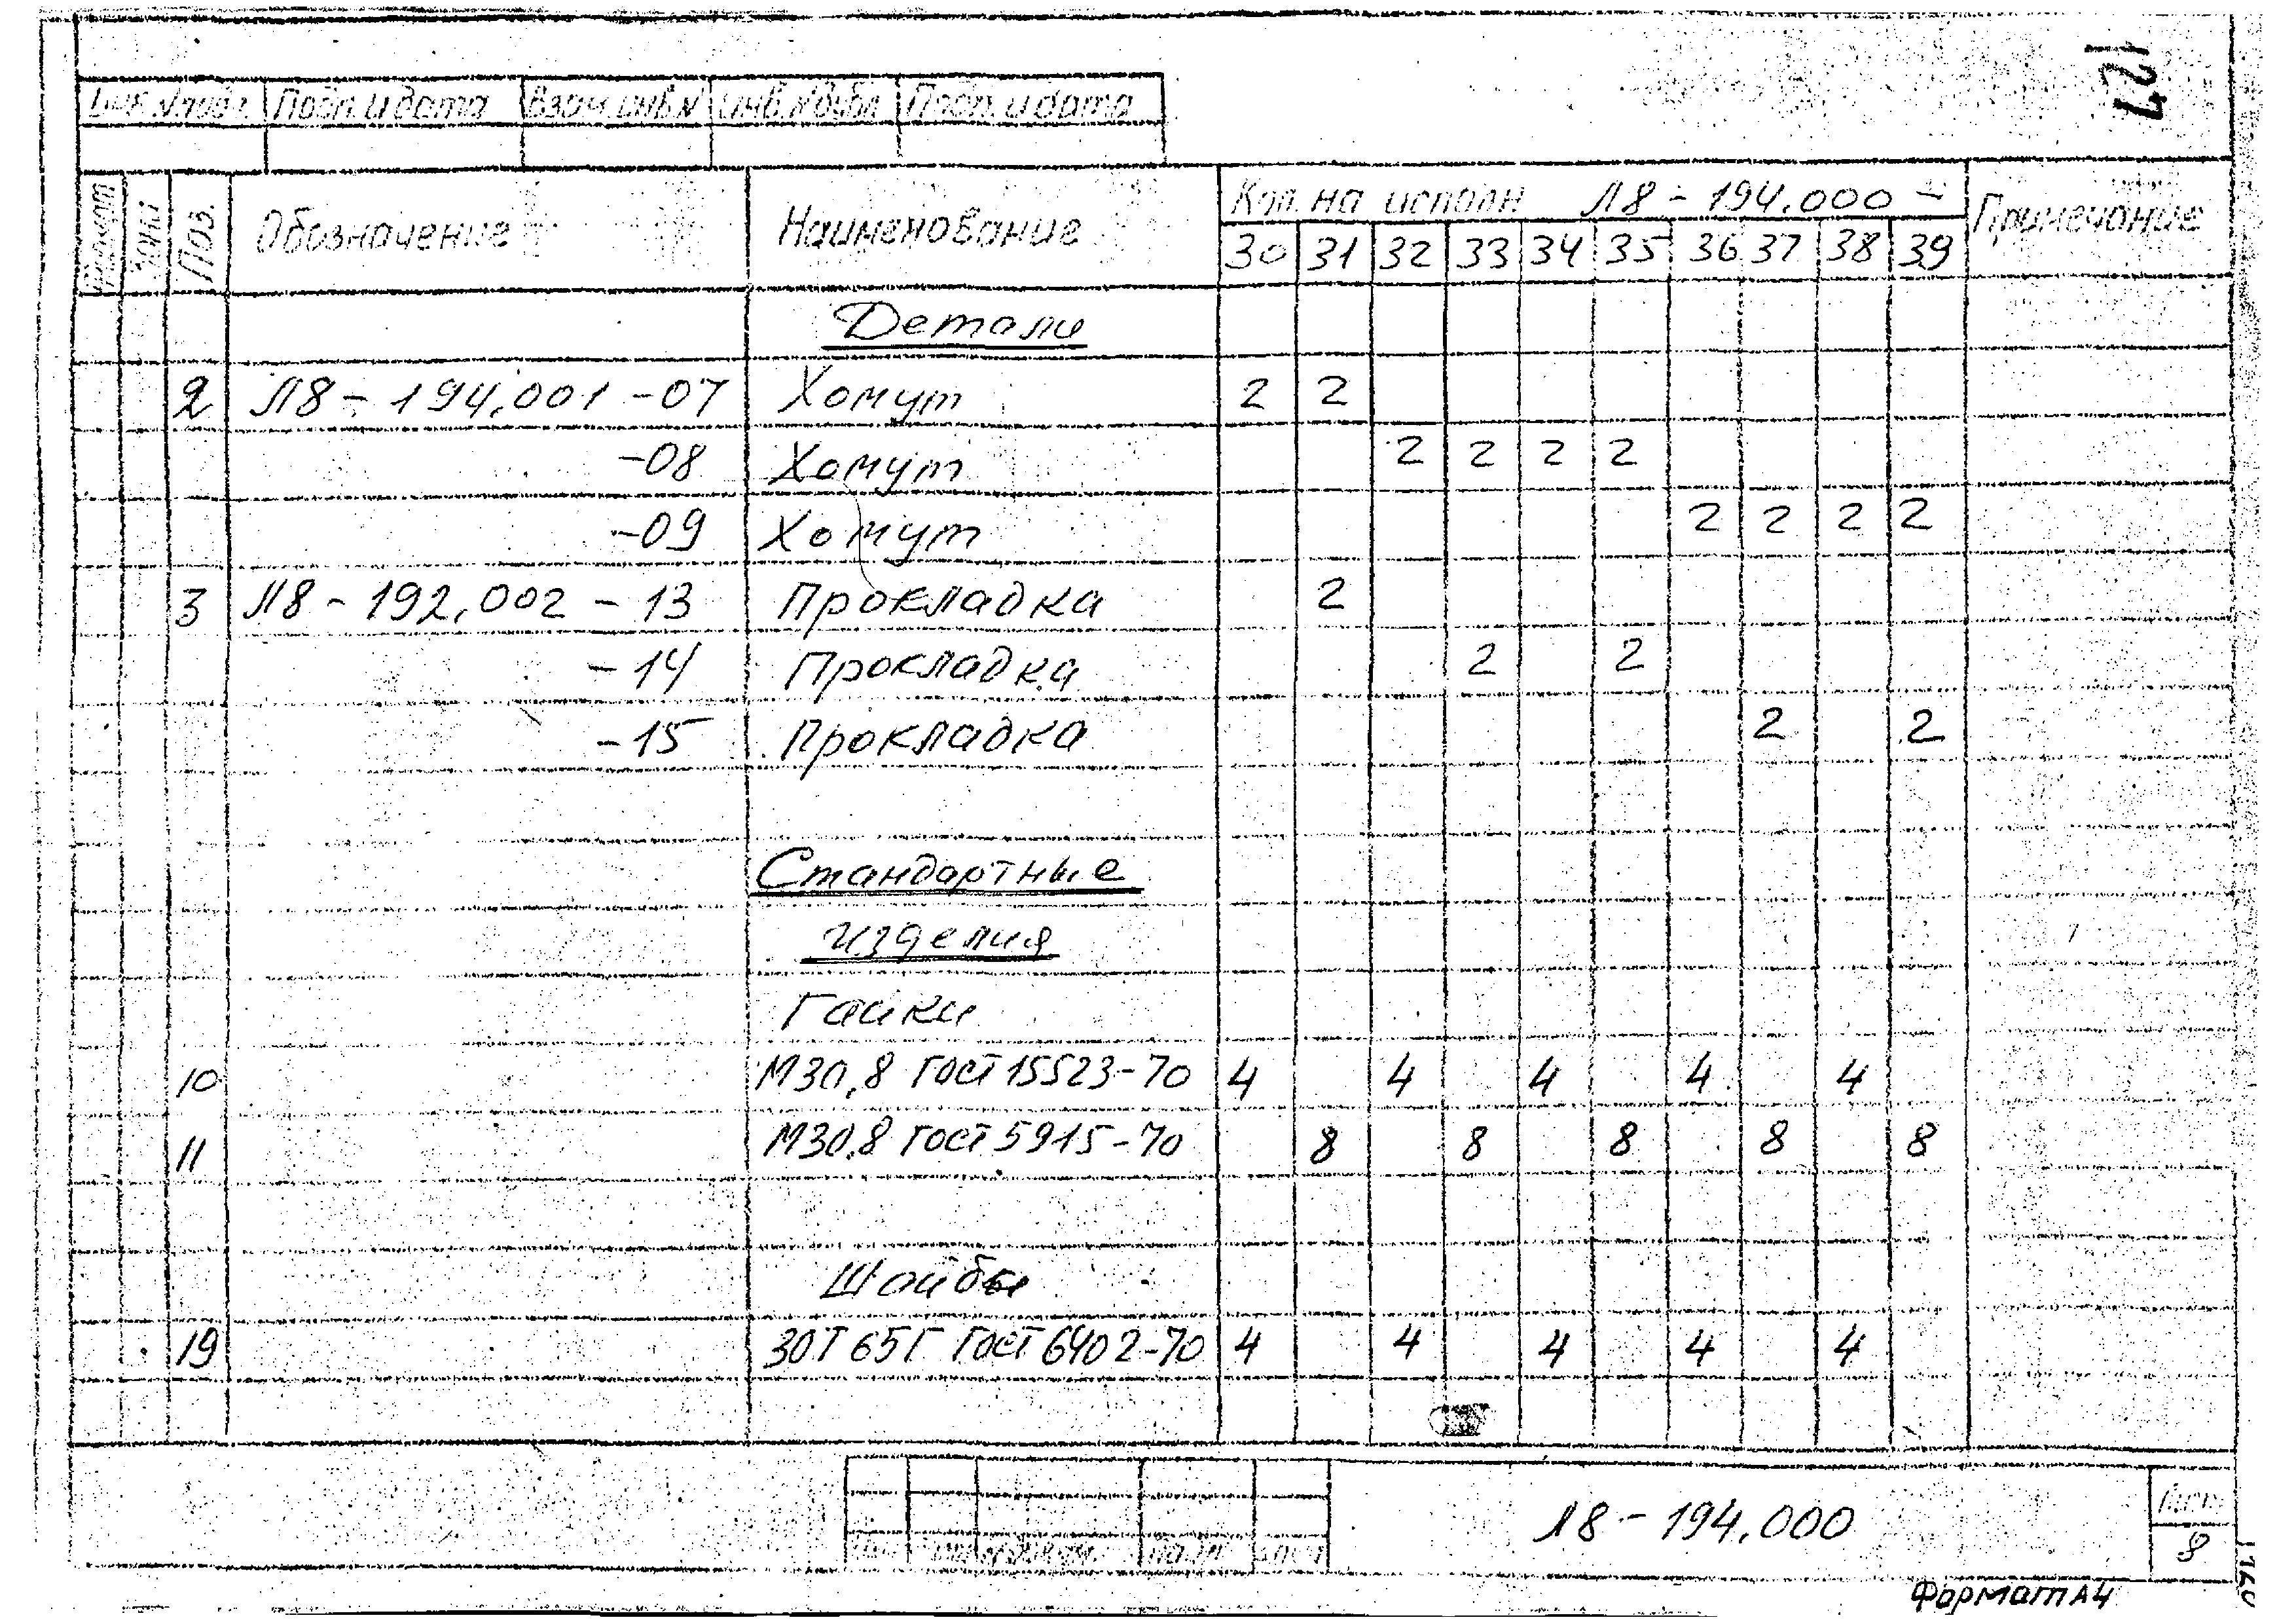 127
Инв. № подл. Подп. и дата Взам. инв. № Инв. № дубл. Подп. и дата
Формат Зона Поз. Обозначение Наименование Кол. на исполн Л8-194.000- Примечание
30 31 32 33 34 35 36 37 38 39
Детали
2 Л8-194.001-07 Хомут 2 2
-08 Хомут 2 2 2 2
-09 Хомут 2 2 2 2
3 Л8-192.002-13 Прокладка 2
-14 Прокладка 2 2
-15 Прокладка 2 2
Стандартные
изделия
Гайки
10 М30.8 ГОСТ 15523-70 4 4 4 4 4
11 М30.8 ГОСТ 5915-70 8 8 8 8 8
Шайбы
19 30Т 65Г ГОСТ 6402-70 4 4 4 4 4
Л8-194.000
Лист
Формат А4